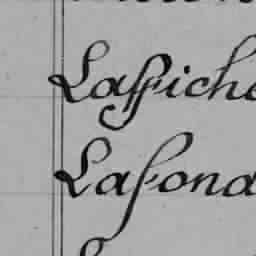 Laffiche
Lafond